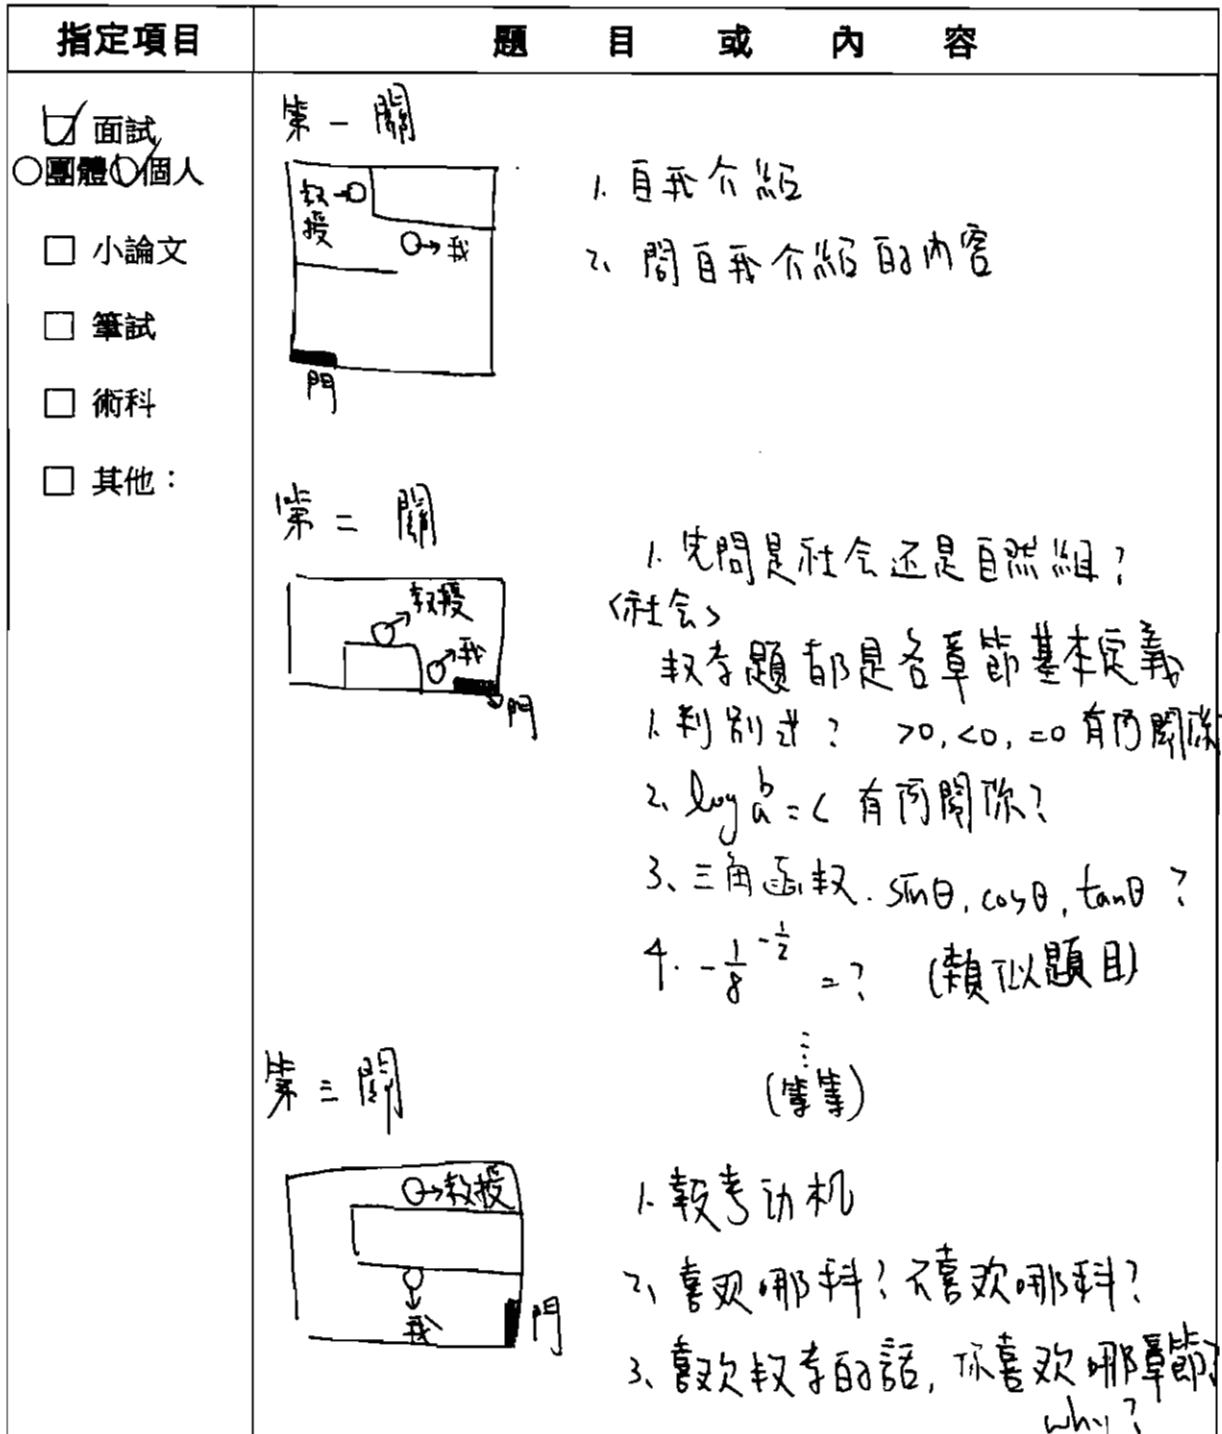 指定項目
題 目 或 內 容
☑ 面試
○團體 ○個人
□ 小論文
□ 筆試
□ 術科
□ 其他：
第一關
教授
我
門
1. 自我介紹
2、問自我介紹的內容
第二關
教授
我
門
1. 先問是社会还是自然組？
<社会>
数学題都是各章節基本定義
1. 判別式？ >0, <0, =0 有何關係
2、log a b = c 有何關係？
3、三角函数. sinθ, cosθ, tanθ ?
4. -1/8 ^ -1/2 = ? (類似題目)
⋮
(等等)
第三關
教授
我
門
1. 報考动机
2、喜欢哪科？不喜欢哪科？
3、喜欢数学的話, 你喜欢哪章節?
why?